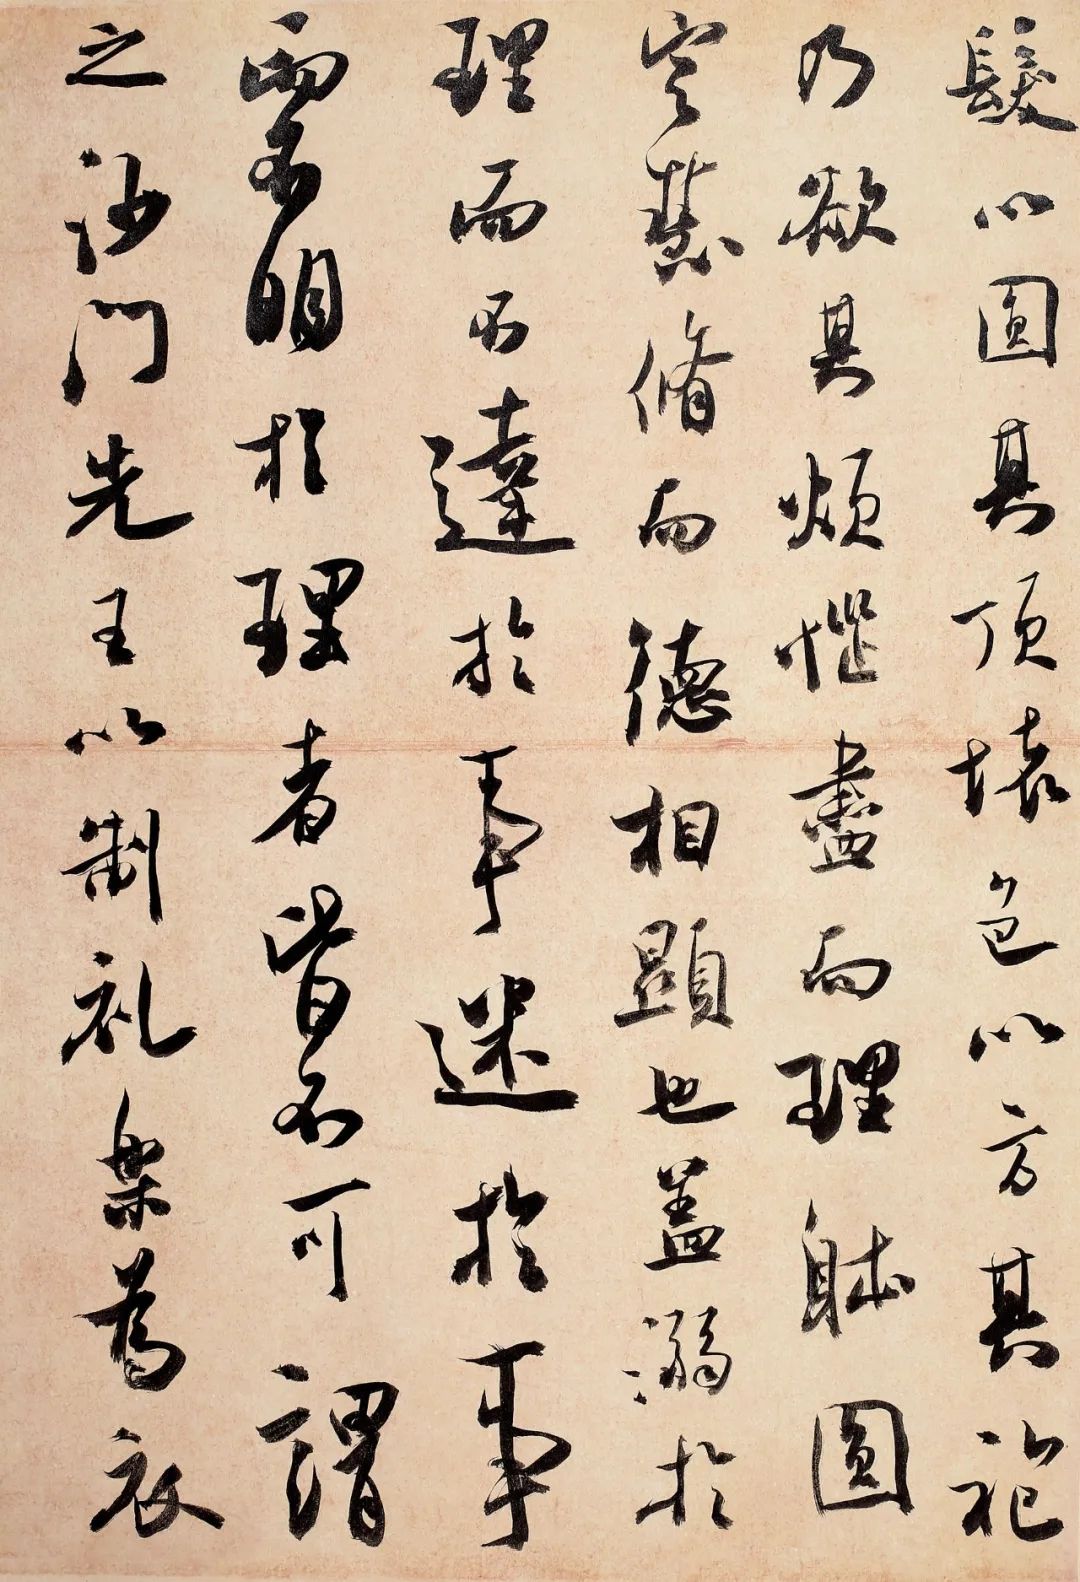 髮以圓其頂壞色以方其袍
乃欲其煩惱盡而理躰圓
定慧脩而德相顯也盖溺於
理而不達於事迷於事
而不明於理者皆不可謂
之沙門先王以制礼樂為衣